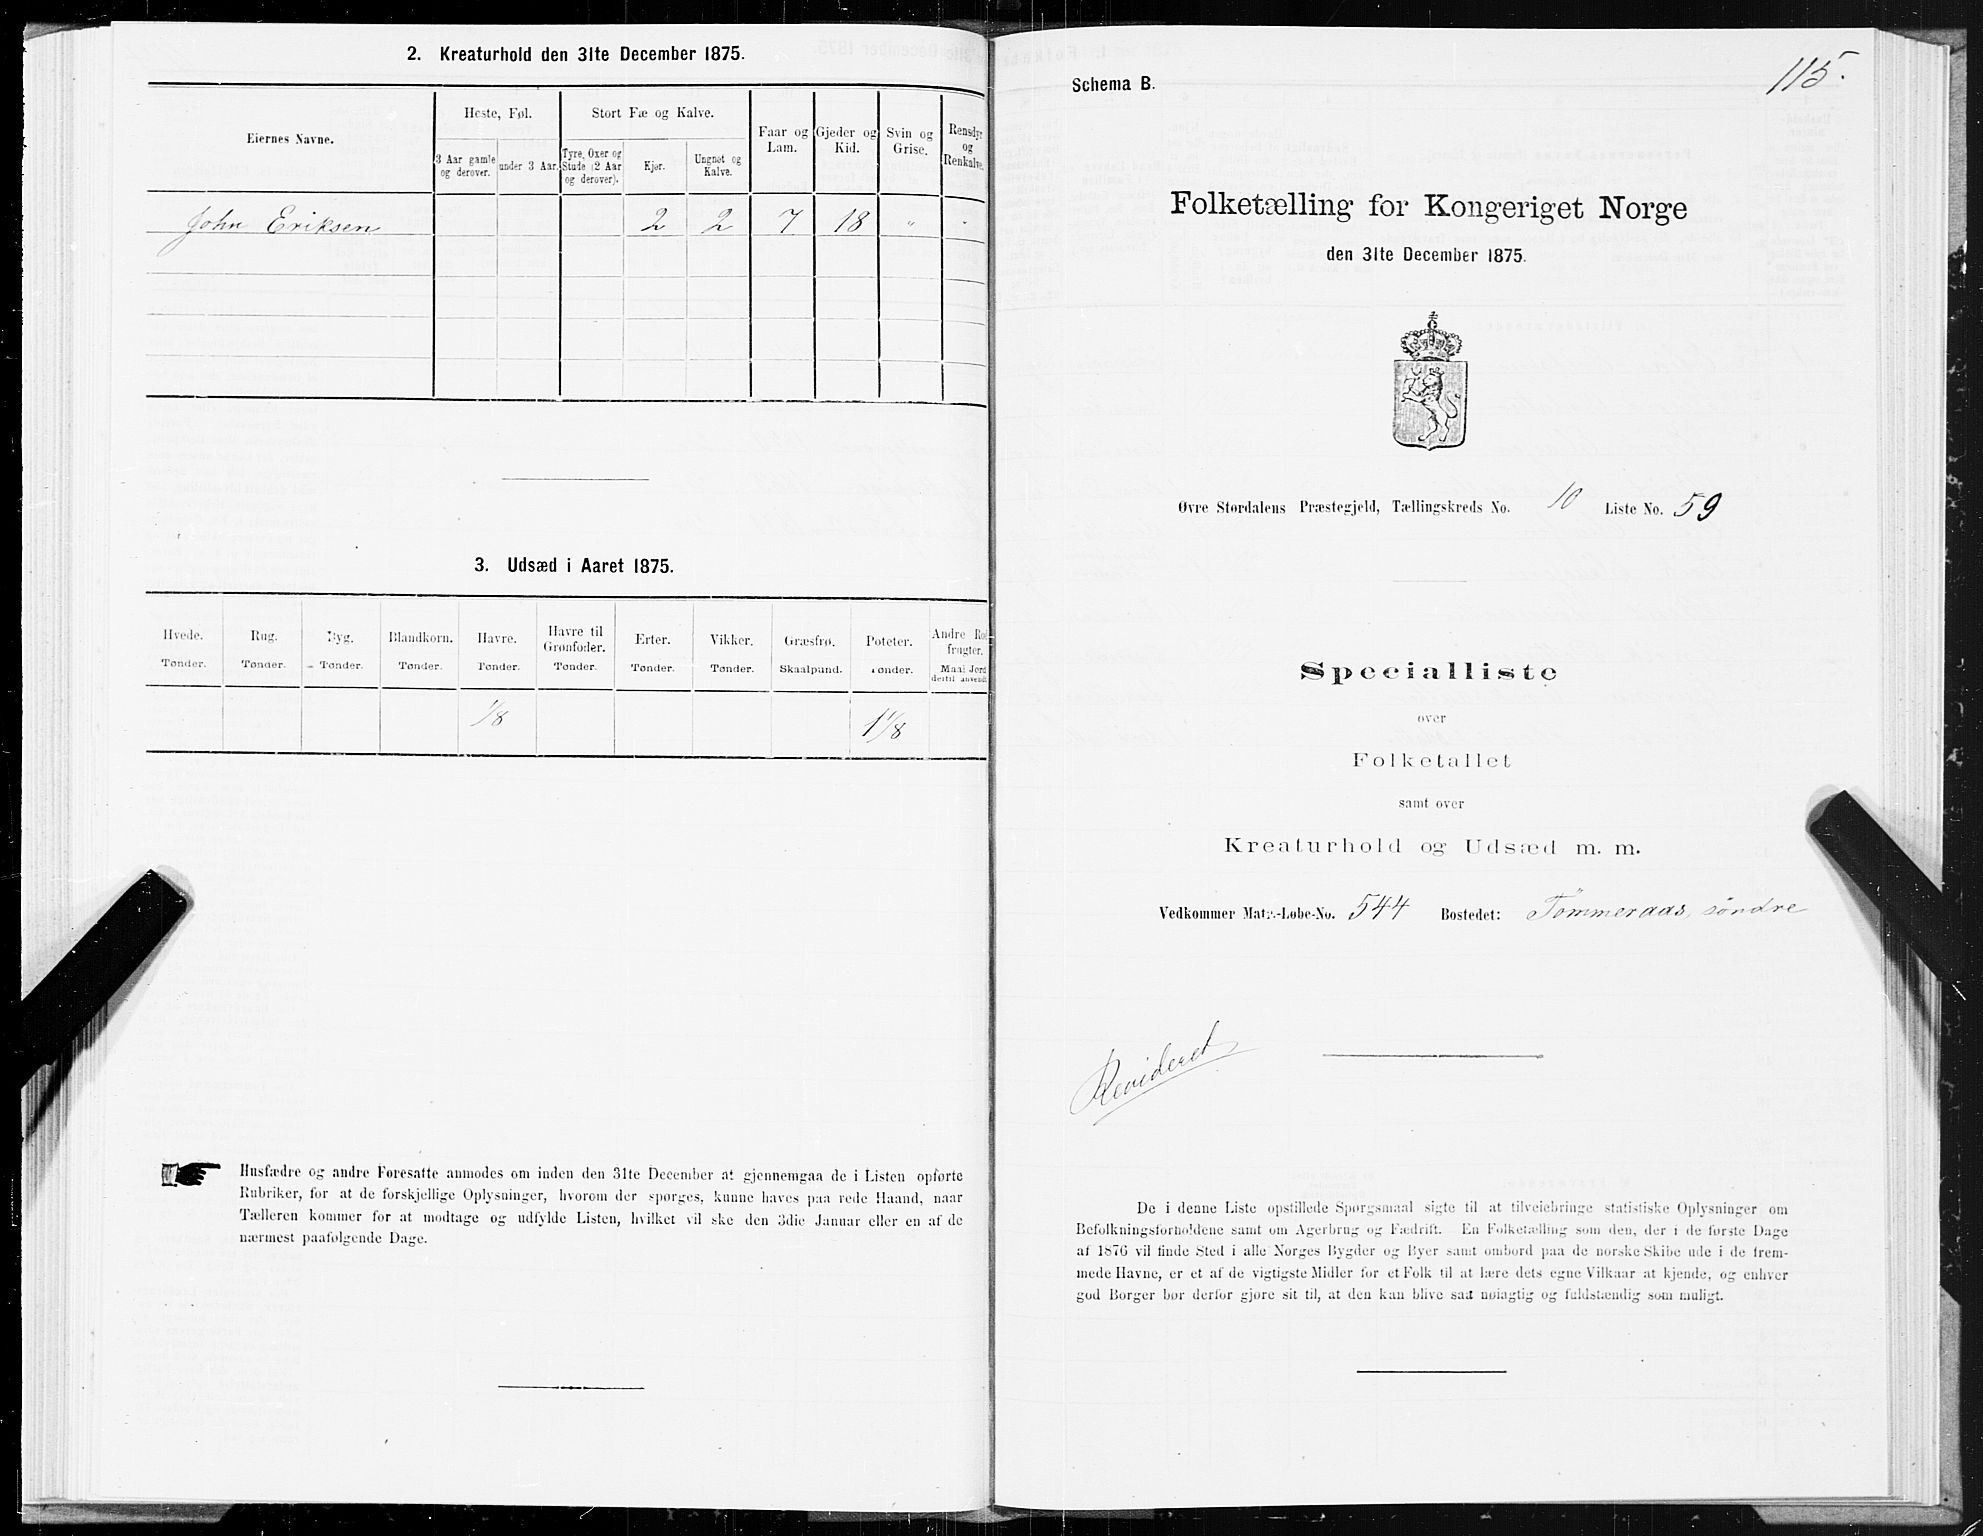 2. Kreaturhold den 31te December 1875.
Eiernes Navne.
Heste, Føl.
Stort Fæ og Kalve.
Faar og Lam.
Gjeder og Kid.
Svin og Grise.
Rensdyr og Renkalve.
3 Aar gamle og derover.
under 3 Aar.
Tyre, Oxer og Stude (2 Aar og derover).
Kjør.
Ungnøt og Kalve.
John Eriksen 2 2 7 18 " "
3. Udsæd i Aaret 1875.
Hvede. Rug. Byg. Blandkorn. Havre. Havre til Grønfoder. Erter. Vikker. Græsfrø. Poteter. Andre Ro frugter.
Tønder. Tønder. Tønder. Tønder. Tønder. Tønder. Tønder. Tønder. Skaalpund. Tønder. Maal Jord dertil anvendt
1/8 1 1/8
Husfædre og andre Foresatte anmodes om inden den 31te December at gjennemgaa de i Listen opførte
Rubriker, for at de forskjellige Oplysninger, hvorom der spørges, kunne haves paa rede Haand, naar
Tælleren kommer for at modtage og udfylde Listen, hvilket vil ske den 3die Januar eller en af de
nærmest paafølgende Dage.
115.
Schema B.
Folketælling for Kongeriget Norge
den 31te December 1875.
Øvre Stordalens Præstegjeld, Tællingskreds No. 10 Liste No. 59
Specialliste
over
Folketallet
samt over
Kreaturhold og Udsæd m. m.
Vedkommer Matr.-Løbe-No. 544 Bostedet: Tömmeraas, söndre
Revideret
De i denne Liste opstillede Spørgsmaal sigte til at tilveiebringe statistiske Oplysninger om
Befolkningsforholdene samt om Agerbrug og Fædrift. En Folketælling som den, der i de første Dage
af 1876 vil finde Sted i alle Norges Bygder og Byer samt ombord paa de norske Skibe ude i de frem-
mede Havne, er et af de vigtigste Midler for et Folk til at lære dets egne Vilkaar at kjende, og enhver
god Borger bør derfor gjøre sit til, at den kan blive saa nøiagtig og fuldstændig som muligt.